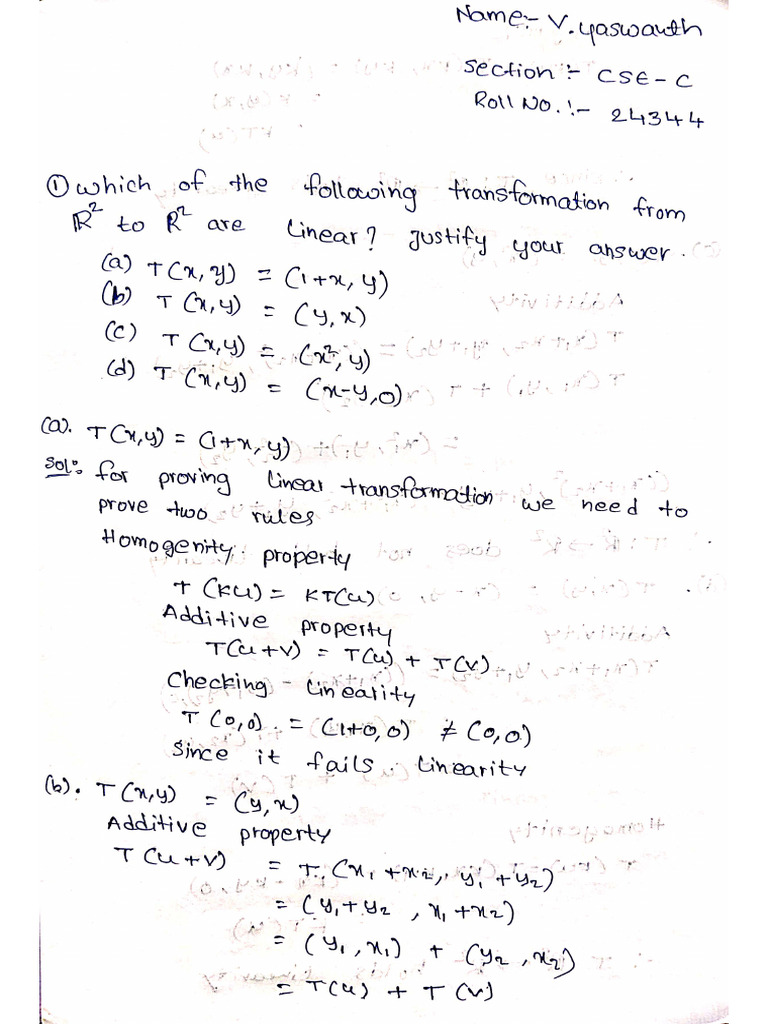 Name:- V. yaswanth
Section:- CSE - C
Roll No. :- 24344
① which of the following transformation from
R² to R² are linear? Justify your answer.
(a) T(x, y) = (1+x, y)
(b) T (x, y) = (y, x)
(c) T (x, y) = (x², y)
(d) T (x, y) = (x-y, 0)
(a). T(x, y) = (1+x, y)
Sol:- for proving linear transformation we need to
prove two rules
Homogenity property
T (ku) = KT(u)
Additive property
T(u+v) = T(u) + T(v)
Checking - linearity
T (0,0) = (1+0, 0) ≠ (0, 0)
Since it fails linearity
(b). T (x,y) = (y, x)
Additive property
T (u+v) = T (x₁+x₂, y₁+y₂)
= (y₁+y₂ , x₁+x₂)
= (y₁, x₁) + (y₂, x₂)
= T(u) + T(v)